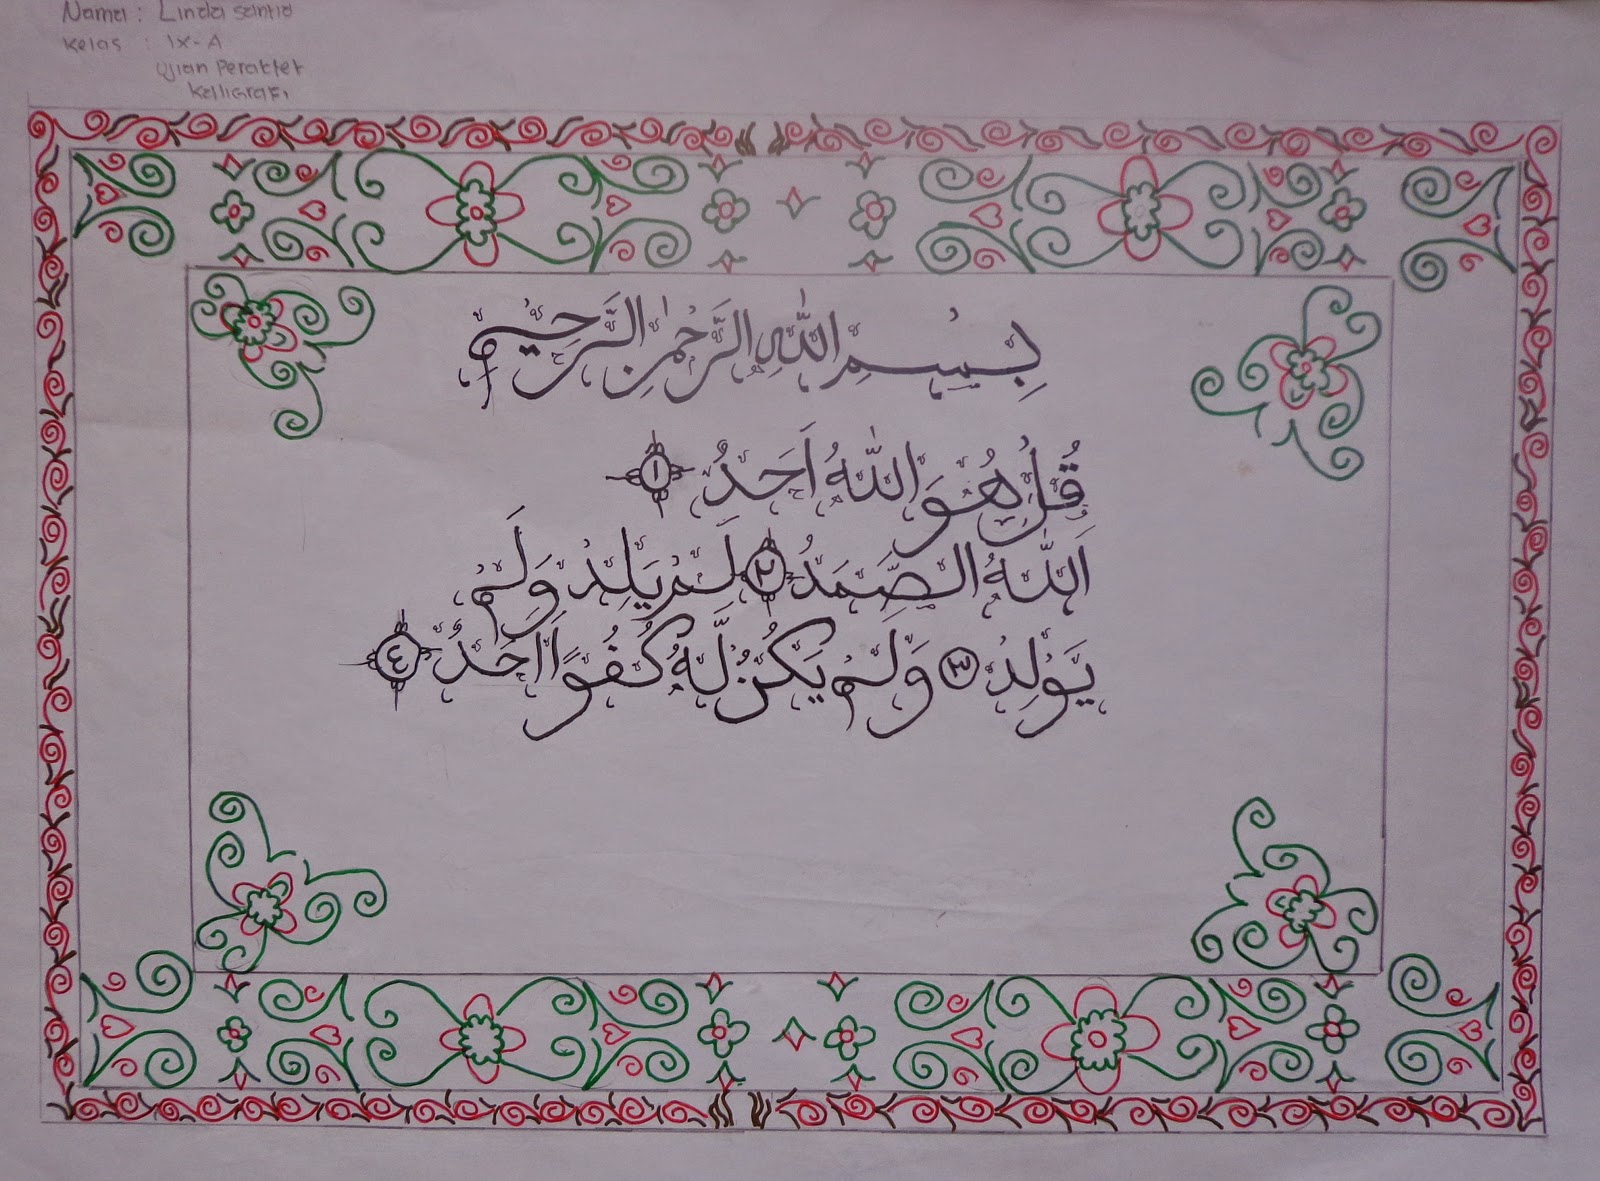 Nama : Linda santia
Kelas : IX-A
Ujian Perakter
Kalligrafi
بِسْمِ اللّٰهِ الرَّحْمٰنِ الرَّحِيْمِ
قُلْ هُوَ اللّٰهُ اَحَدٌ ١
اَللّٰهُ الصَّمَدُ ٢ لَمْ يَلِدْ وَلَمْ
يُوْلَدْ ٣ وَلَمْ يَكُنْ لَّهٗ كُفُوًا اَحَدٌ ٤